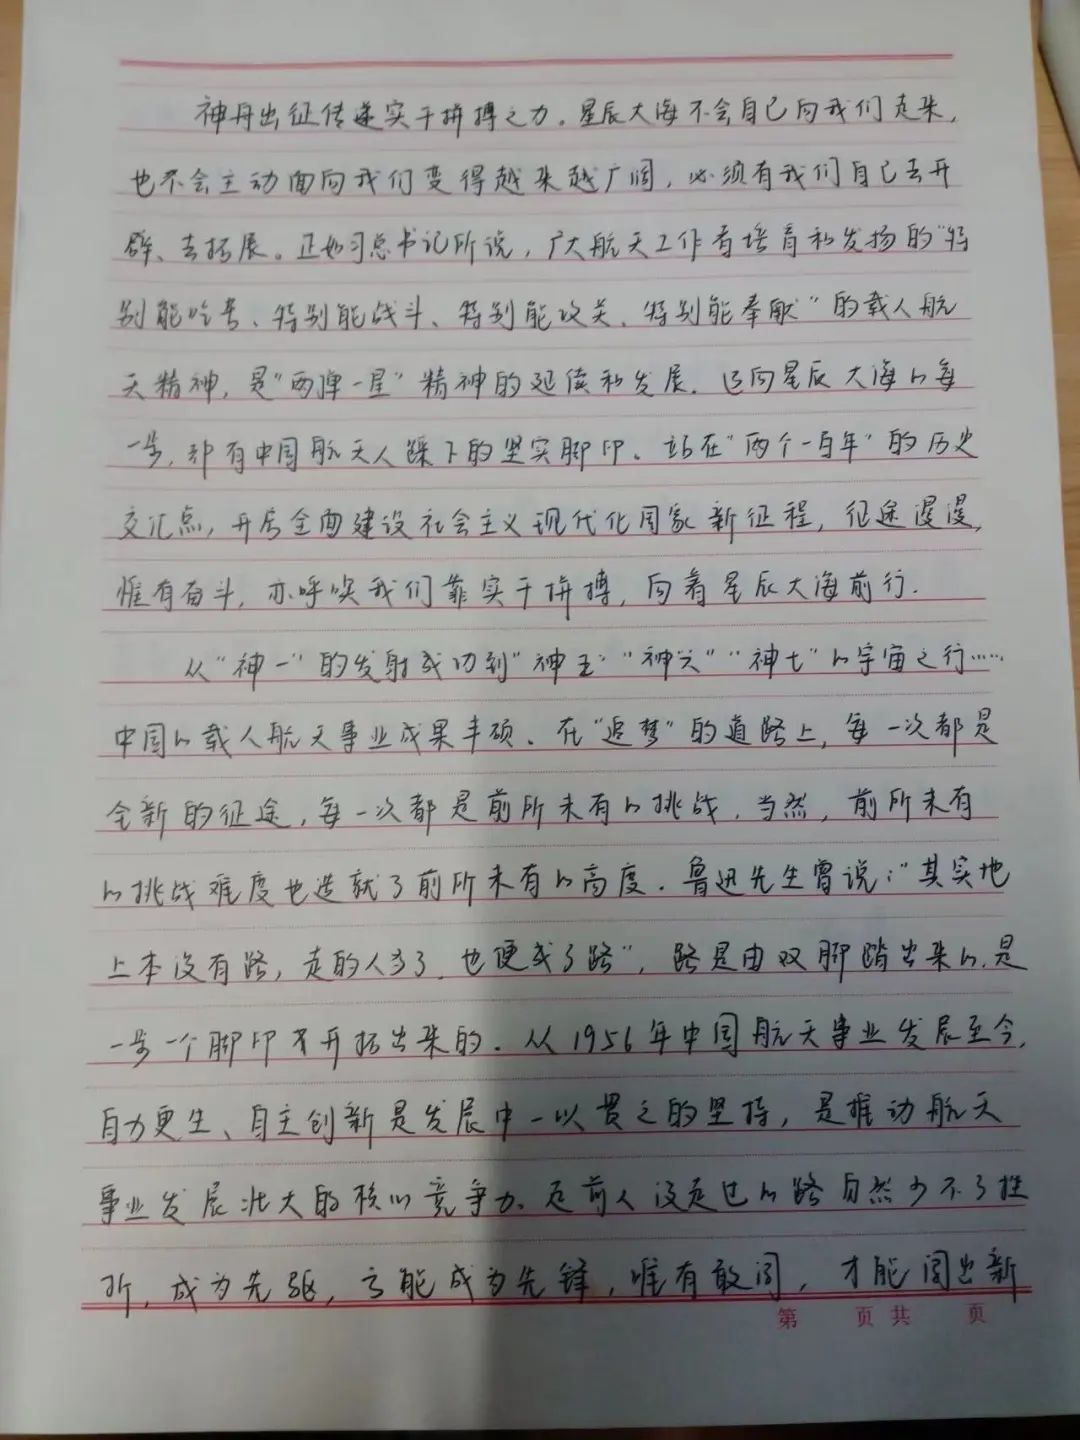 神舟出征传递实干拼搏之力。星辰大海不会自己向我们走来,
也不会主动面向我们变得越来越广阔,必须有我们自己去开
辟、去拓展。正如习总书记所说,广大航天工作者培育和发扬的"特
别能吃苦、特别能战斗、特别能攻关、特别能奉献"的载人航
天精神,是"两弹一星"精神的延续和发展.迈向星辰大海的每
一步,都有中国航天人踩下的坚实脚印。站在"两个一百年"的历史
交汇点,开启全面建设社会主义现代化国家新征程,征途漫漫,
惟有奋斗,亦呼唤我们靠实干拼搏,向着星辰大海前行.
从"神一"的发射成功到"神五""神六""神七"的宇宙之行……
中国的载人航天事业成果丰硕。在"追梦"的道路上,每一次都是
全新的征途,每一次都是前所未有的挑战.当然,前所未有
的挑战难度也造就了前所未有的高度.鲁迅先生曾说:"其实地
上本没有路,走的人多了,也便成了路",路是由双脚踏出来的,是
一步一个脚印才开拓出来的.从1956年中国航天事业发展至今,
自力更生、自主创新是发展中一以贯之的坚持,是推动航天
事业发展壮大的核心竞争力。走前人没走过的路自然少不了挫
折,成为先驱,方能成为先锋,唯有敢闯,才能闯出新
第 页 共 页